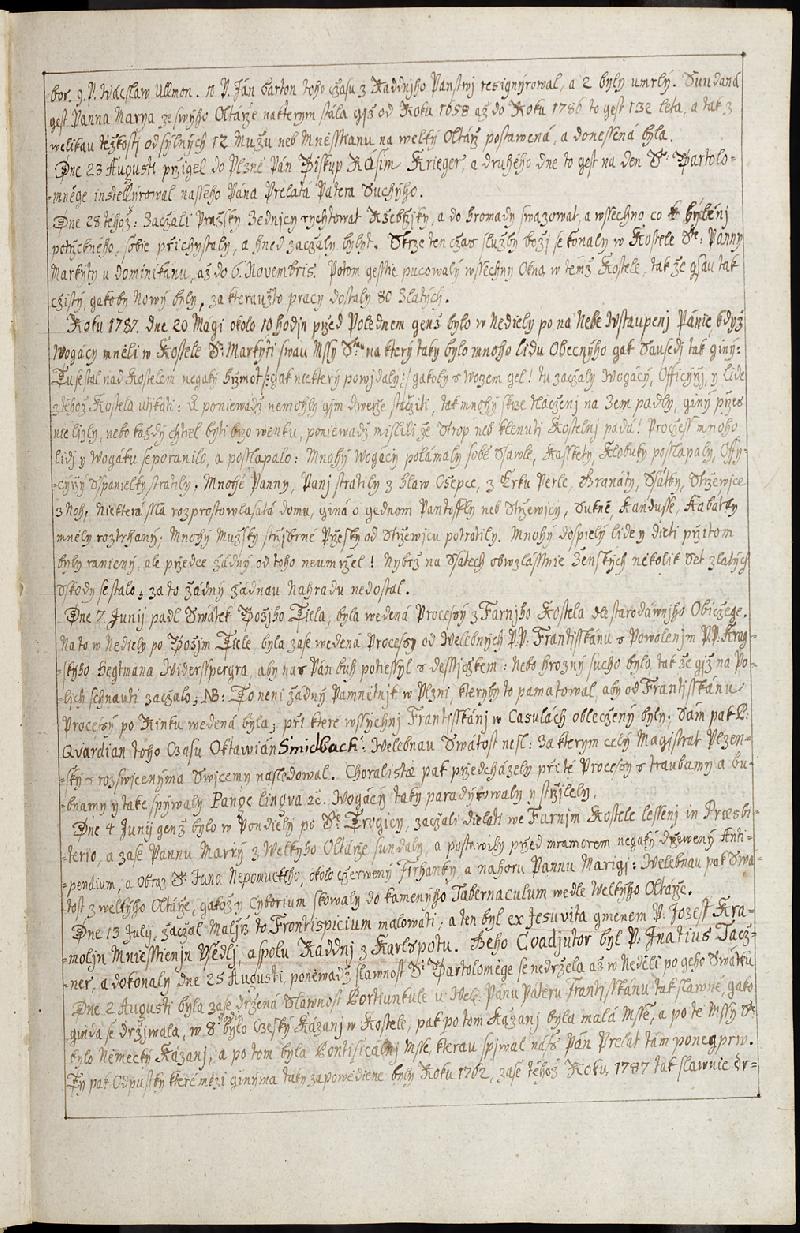 bor. g. P. Waczlaw Ullmon. a P. Ján Barton toho czasu z Raddnjho Panstwj resignýrowal, a 2 byly umrlý. Sundaná
gest Panna Marya ze swýho Oltárže na kterym stála giž od Roku 1658 až do Roku 1786 to gest 132 leta, a tak z
welikau težkostj od sylných 12 Mužu neb Mněsstianu na welký Oltárž postawená, a donessená byla.
Dne 23 Augusti przigel do Plzně Pán Biskup Kásim Krieger, a druhého dne to gest na den St: Bartolo-
-mněge instellýrowal nasseho Pána Prelata Patera Suchýho.
Dne 28 tehož: Zaczali Pražský Zednicy rychtowat, a do hromady swazowat, a wssechno co k bylenj
potržebného, sobie przichystaly, a hned zaczaly bylyt. Skrze ten czas služby božj se konaly w Kostele Ste: Panny
Markýty u Dominikanu, až do 6. Novembris. Potom gesstě pucowalý wssechny Okna w temž Kostele, tak že gsau tak
czistý gakoby Nowý byly, za kteraužto pracy dostaly 80 Zlatých.
Roku 1787. dne 20 Magi okolo 10 hodjn przed Polednem genž bylo w Nediely po na Nebe Wstaupenj Páně když
Wogácy mněli w Kostele St: Markýti swau Mssy Stau na který taky bylo mnoho lidu Obecnýho gak Sausedj tak giný:
Tu se stal nad Kostelem negaký hrzmot /: gak niekterý powjdaly :/ gakoby s Wozem gel! tu zaczaly Wogácy, Officýrj, y lide
z tehož Kostela utjkati: A poniewadž nemohly gjm dwerže staczitj, tak mnohý skrze tlaczenj na Zem padly, giný przes
nie bjžly, nebo každý chtel býti brzo wenku, poniewadž mislili že Strop neb klenutj Kostelnj padá! Procžeß mnoho
lidj y Wogáku se poranilo, a posslapalo: Mnohý Wogácy polámaly sobě Ssawle, Kasskety, Klobuky posslapaly, Offy-
cýrzj Sspanielky stratily. Mnohé Panny, Panj stratily z Hlaw Czepce, z Krku Perle, Granáty, Ssátky, Strzewjce
z Noh. Niekterá ssla rozprostowlasatá domu, giná o gednom Pantofly neb Strzewjcy, Sukně, Kandusse, Kabátky
mněly roztrhaný. Mnohý Mužský strzjberné Przesky od Strzewjcu potratily. Mnohý dospielý lide y dieti przitom
byly ranieny, ale przedce žádný od toho neumrzel! Nybrž na Ssatech obwzlásstnie Ženských nekolik Set zlatých
sskody se stalo, za to žádný žádnau Nahradu nedostal.
Dne 7. Junij padl Swátek Božjho Tiela, byla wedená Procesý z Farnjho Kostela dle starodáwnjho Obiczege.
Na to w Nediely po Božjm Tiele, byla zase wedená Procesý od Welebných P.P. Frantisskánu s Powolenjm P.P. Krag-
-skýho Hegtmana Widerspergra, aby nas Pán buh potiessyl s desstjczkem: Nebo hrozný sucho bylo, tak že giž na Po-
ljch schnauti zaczalo; NB: To nenj žádný Pamnětnjk w Plzni kterýby to pamatowal, aby od Frantisskánu
Procesý po Rinku wedená byla; przi které wssychnj Frantisskánj w Casulách obleczený byly: Sám pak P:
Qvardian toho Czasu Oktawián Smidback. Welebnau Swátost nesl: Za kterym celý Magistrat Plzen-
ský s rozswicenýma Swjcemy nasledowal. Choralista pak przedcházely przi té Procesý s traubamy a bu-
-bnamy y také spjwaly Pange lingua &c. Wogácy taky paradýrowaly y strzjlely.
Dne 4 Junij genž bylo w Pondiely po St: Trogicy, zaczali dielati we Farnjm Kostele lessenj in Præsbi-
-terio, a zase Pannu Maryj z Welkýho Oltárže sundaly, a postawily przed mramorem negaký drzewený Anti-
-pendium, a Obraz St: Jana Nepomuckého, okolo czerweny Firhanky, a nahoru Pannu Marigi: Welebnau pak Swá-
tost z welkýho Oltárže, gakož y Cyborium skowaly do kamenýho Tabernaculum wedle Welkýho Oltárže.
Dne 13 July, zaczal Maljrz to Frontispicium malowáti, a ten byl ex Jesuvita gmenem P. Jozeff Kra-
-moljn Mniesstienjn Ržedlj, a spolu Raddnj z Karlspotu. Geho Coadjutor byl P. Jnatius Tacz-
ner, a dokonaly dne 25 Augusti, poniewadž slawnost St: Bartolomněge se nedržela až w Nedělj po geho Swátku
Dne 2 Augusti byla zase držená Slawnost Portiunkule u Weleb: Pánu Pateru Frantisskánu tak slawně, gako
ginda se držjwala, w 8 hodin bylo Czeský Kázanj w Kostele, pak po tom Kázanj byla malá Msse, a po té Mssy St:
bylo Německý Kázanj, a po tom byla Pontificálnj Msse, kterau spjwal náß Pán Prelat tám ponegprw.
Ty pak Odpustky které mezi ginýma taky zapowědiene byly Roku 1762, zase tehož Roku 1787 tak slawnie dr-